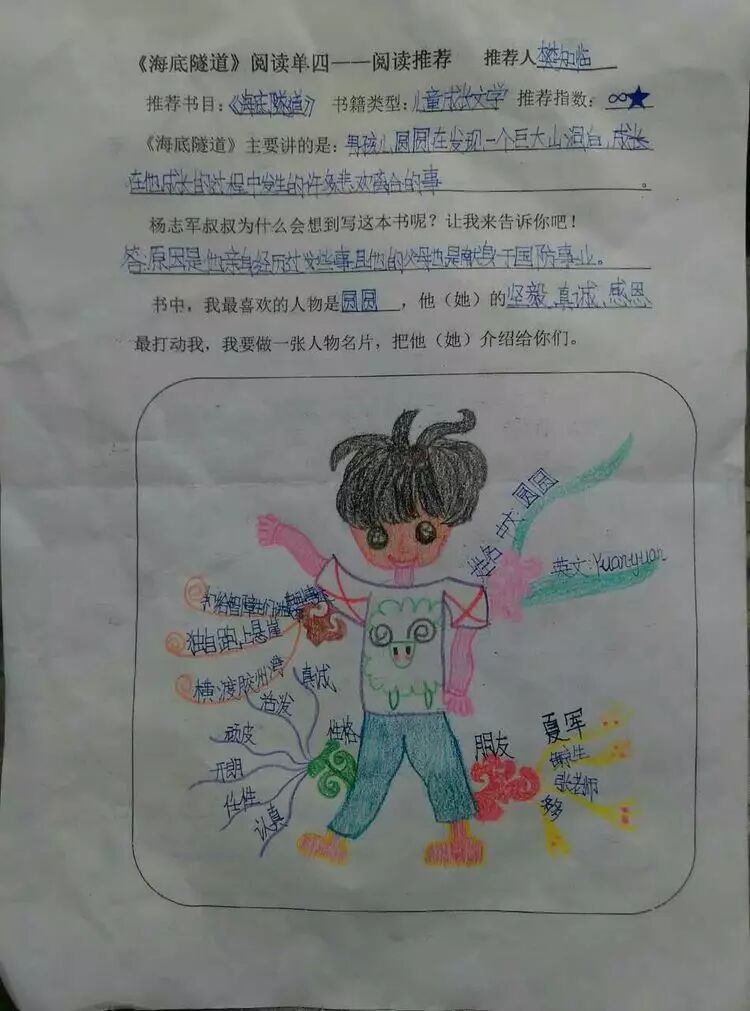 《海底隧道》阅读单四——阅读推荐 推荐人樊知临
推荐书目:《海底隧道》 书籍类型:儿童成长文学 推荐指数:∞★
《海底隧道》主要讲的是:男孩儿圆圆在发现一个巨大山洞自,成长
在他成长的过程中发生的许多悲欢离合的事。
杨志军叔叔为什么会想到写这本书呢?让我来告诉你吧!
答:原因是他亲身经历过这些事且他的父母也是献身于国防事业。
书中,我最喜欢的人物是圆圆,他(她)的坚毅、真诚、感恩
最打动我,我要做一张人物名片,把他(她)介绍给你们。
姓名
中文:圆圆
英文:Yuanyuan
独自跑上悬崖
横渡胶州湾
性格
真诚
活泼
顽皮
开朗
任性
认真
朋友
夏军
张老师
多多